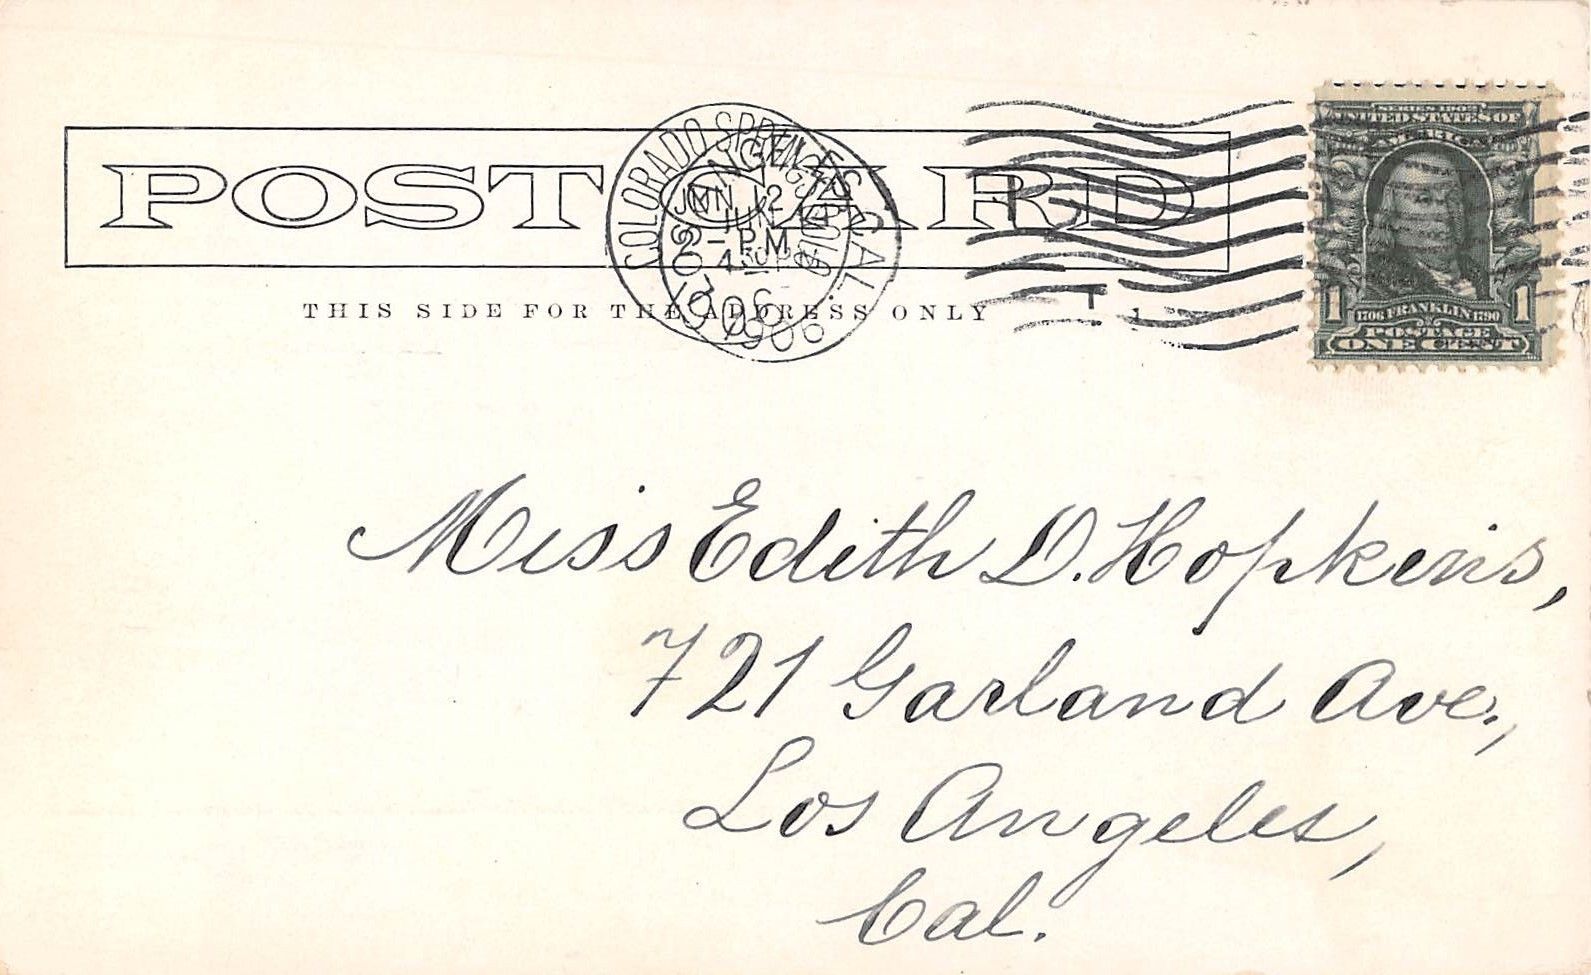 POST CARD
THIS SIDE FOR THE ADDRESS ONLY
COLORADO SPRINGS
LOS ANGELES, CAL.
JUN 12
PM
1906
1906
SERIES 1902
UNITED STATES OF
AMERICA
1 1706 FRANKLIN 1790 1
POSTAGE
ONE CENT
Miss Edith D. Hopkins,
721 Garland Ave.,
Los Angeles,
Cal.